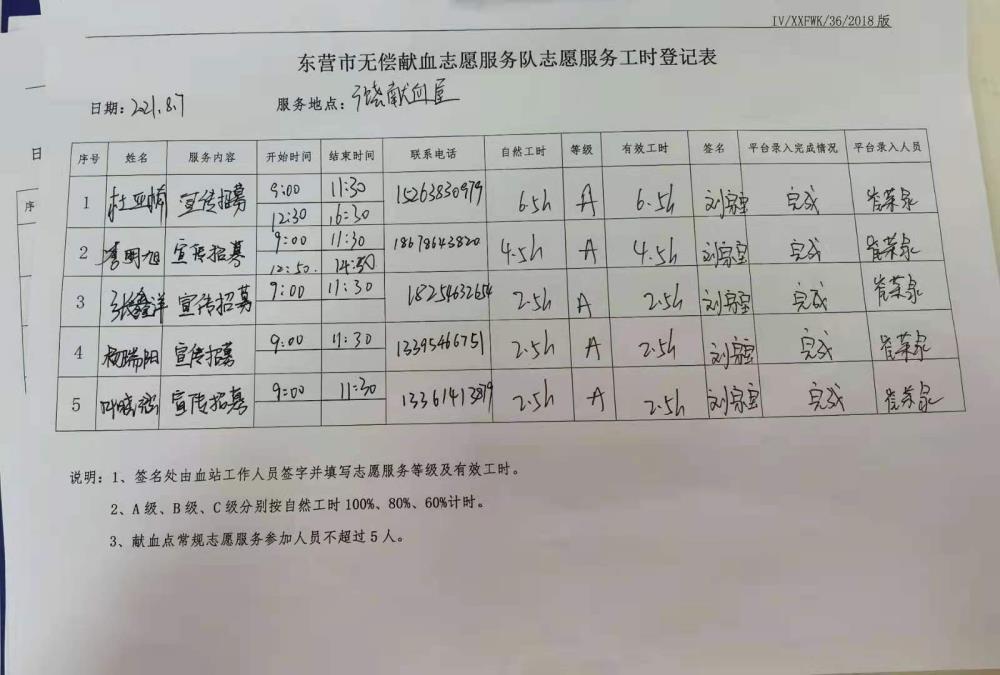 IV/XXFWK/36/2018版
东营市无偿献血志愿服务队志愿服务工时登记表
日期：2021.8.7 服务地点：广饶献血屋
序号 姓名 服务内容 开始时间 结束时间 联系电话 自然工时 等级 有效工时 签名 平台录入完成情况 平台录入人员
1 杜亚楠 宣传招募 9:00 11:30 15263830979 6.5h A 6.5h 完成
12:30 16:30
2 李明旭 宣传招募 9:00 11:30 18678643820 4.5h A 4.5h 完成
12:50. 14:50
3 张鑫洋 宣传招募 9:00 11:30 18254632654 2.5h A 2.5h 完成
4 杨瑞阳 宣传招募 9:00 11:30 13395466751 2.5h A 2.5h 完成
5 宣传招募 9:00 11:30 13361413879 2.5h A 2.5h 完成
说明：1、签名处由血站工作人员签字并填写志愿服务等级及有效工时。
2、A级、B级、C级分别按自然工时100%、80%、60%计时。
3、献血点常规志愿服务参加人员不超过5人。
日
序